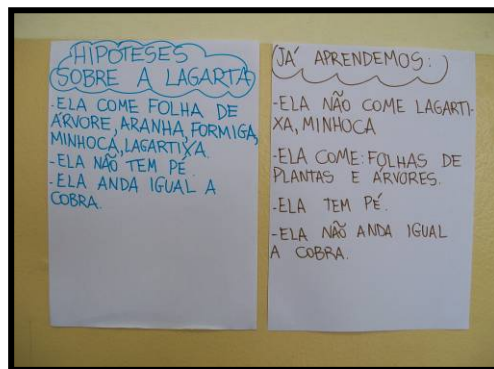 HIPOTESES
SOBRE A LAGARTA
-ELA COME FOLHA DE
ÁRVORE, ARANHA, FORMIGA,
MINHOCA, LAGARTIXA.
-ELA NÃO TEM PE.
-ELA ANDA IGUAL A
COBRA.
JÁ APRENDEMOS:
-ELA NÃO COME LAGARTI-
XA, MINHOCA
-ELA COME: FOLHAS DE
PLANTAS E ÁRVORES.
-ELA TEM PÉ.
-ELA NÃO ANDA IGUAL
A COBRA.